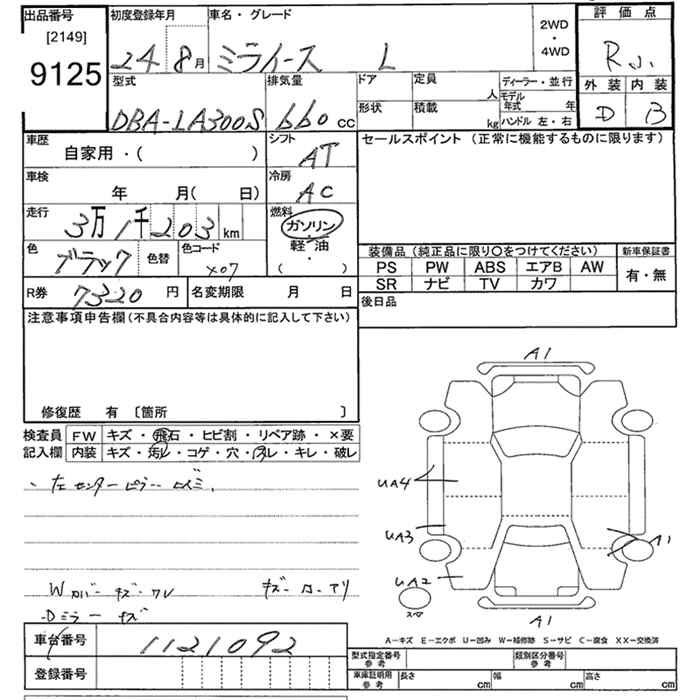 出品番号
[2149]
9125
初度登録年月
24 8月
車名・グレード
ミライース L
2WD
・
4WD
評価点
R
外装 内装
D B
型式
DBA-LA300S
排気量
660 cc
ドア
定員
人
形状
積載
kg
ディーラー・並行
モデル年式 年
ハンドル 左・右
車歴
自家用・( )
シフト
AT
セールスポイント (正常に機能するものに限ります)
車検
年 月( 日)
冷房
AC
走行
3万1千203km
燃料
ガソリン
・
軽・油
( ・ )
色
ブラック
色替
色コード
X07
装備品(純正品に限り○をつけてください)
新車保証書
PS PW ABS エアB AW
有・無
SR ナビ TV カワ
R券
7320 円
名変期限 月 日
後日品
注意事項申告欄(不具合内容等は具体的に記入して下さい)
修復歴 有 〔箇所 〕
検査員
記入欄
FW キズ・飛石・ヒビ割・リペア跡・×要
内装 キズ・汚レ・コゲ・穴・スレ・キレ・破レ
・左センターピラー ユガミ
Wカバー キズ・ワレ
Dミラー キズ
A1
UA4
UA3
UA2
A1
A1
スペ
A-キズ E-エクボ U-凹み W-補修跡 S-サビ C-腐食 XX-交換済
車台番号
1121092
登録番号
型式指定番号
参考
類別区分番号
参考
車庫証明用
参考
長さ cm
幅 cm
高さ cm